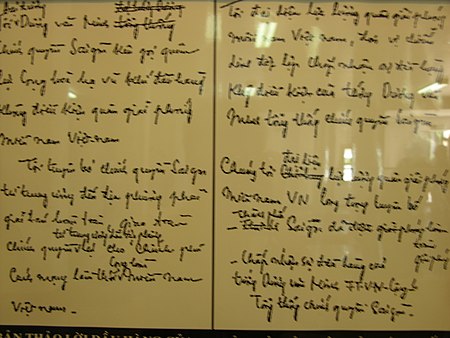 Đại tướng
Tôi Dương văn Minh tổng thống
chính quyền Saigon kêu gọi quân
lực Cộng hoà hạ vũ khí đầu hàng
không điều kiện quân giải phóng
miền nam Việt-nam
Tôi tuyên bố chính quyền Saigon
từ trung ương đến địa phương phải
giải tán hoàn toàn giao toàn
từ trung ương đến địa phương
chính quyền lại cho Chính phủ
Cộng hoà
Cách mạng lâm thời miền nam
Việt-nam.
Tôi đại diện lực lượng quân giải phóng
miền nam Việt nam,
chấp nhận sự đầu hàng
không điều kiện của tướng Dương văn
Minh tổng thống chính quyền Saigon
đại diện
Chúng tôi lực lượng quân giải phóng
miền nam VN long trọng tuyên bố
thành phố
- Saigon đã được giải phóng hoàn
toàn
- Chấp nhận sự đầu hàng của
tướng Dương văn Minh
Tổng thống chính quyền Saigon.